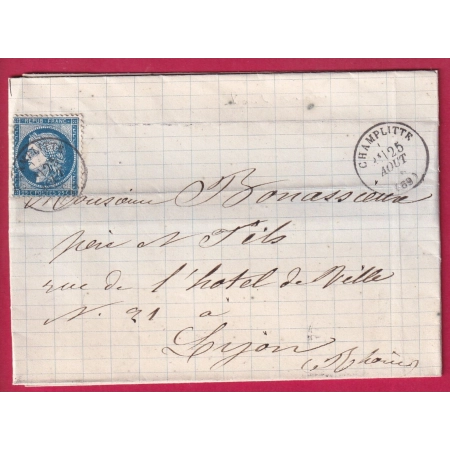 REPUB. FRANC.
25 POSTES 25
CHAMPLITTE
25
AOUT
(69)
Monsieur Bonassieux
père et Fils
rue de l'hotel de Ville
N. 31 à
Lyon
(Rhône)